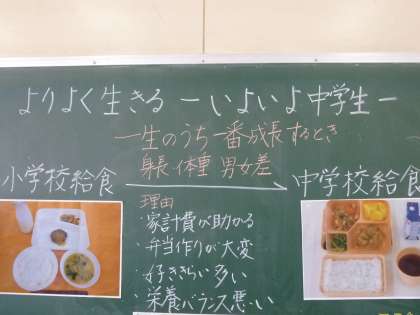 よりよく生きる ーいよいよ中学生ー
一生のうち一番成長するとき
身長 体重 男女差
小学校給食
中学校給食
理由
・家計費が助かる
・弁当作りが大変
・好ききらい多い
・栄養バランス悪い